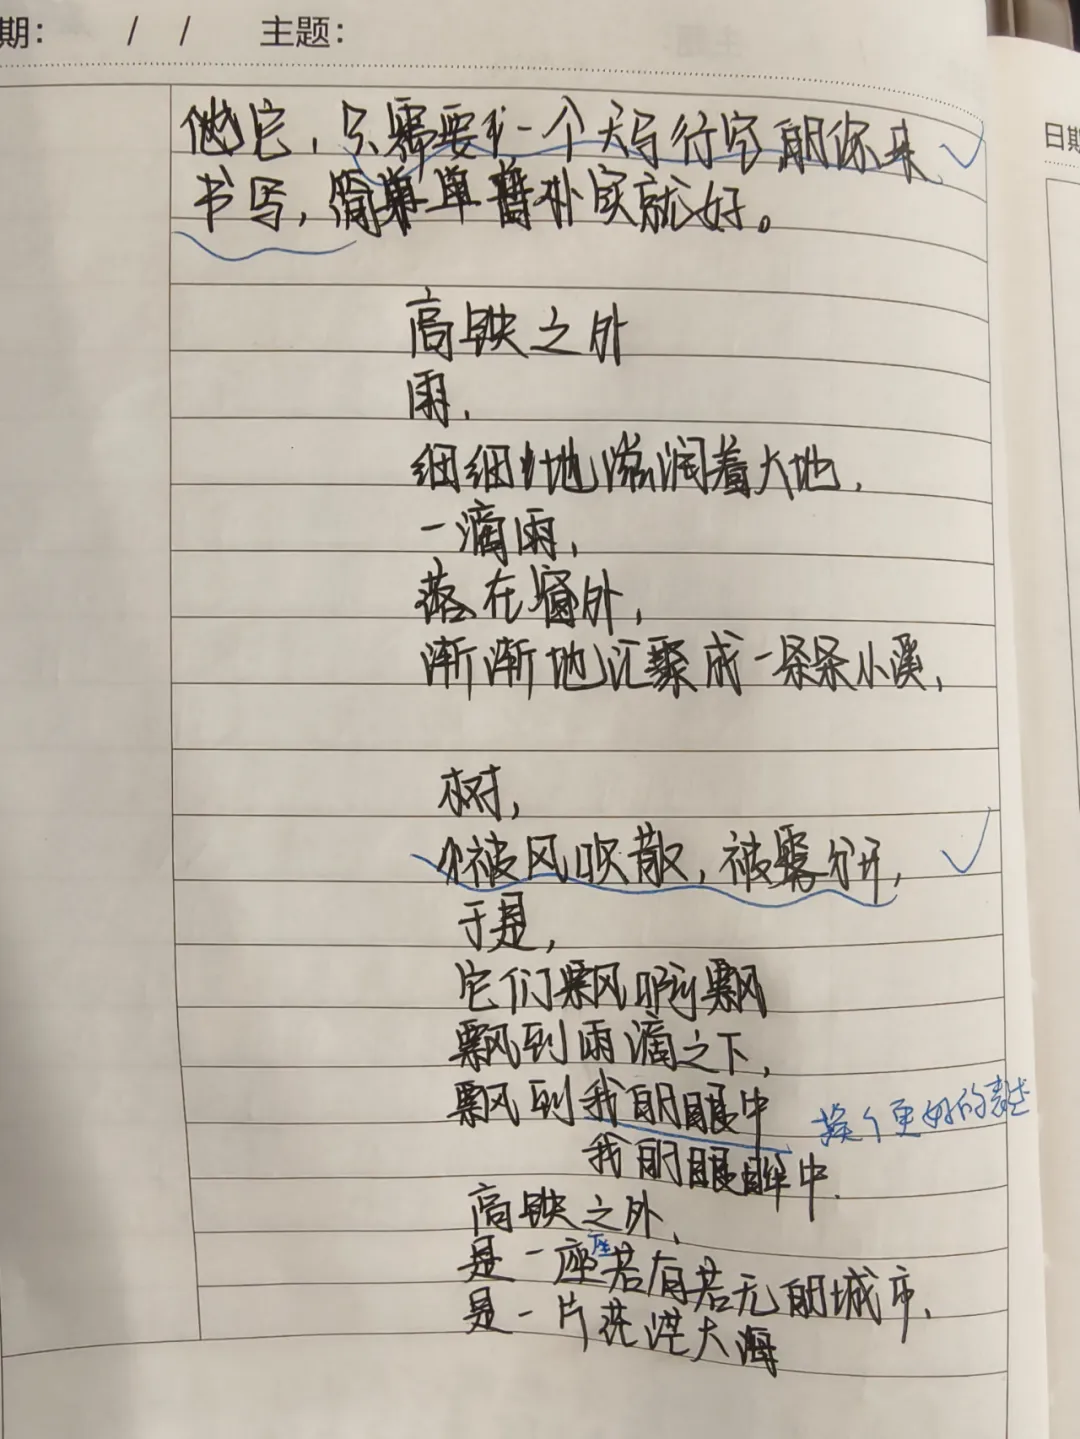 期： / / 主题：
日期
他它，只需要一个大写行字的你来
书写，简单单普朴实就好。
高铁之外
雨，
细细地滋润着大地，
一滴雨，
落在窗外，
渐渐地汇聚成一条条小溪，
树，
被风吹散，被雾分开，
于是，
它们飘啊飘
飘到雨滴之下，
飘到我的眼中
换个更好的表述
我的眼眸中.
高铁之外，
是一座座若有若无的城市，
是一片茫茫大海